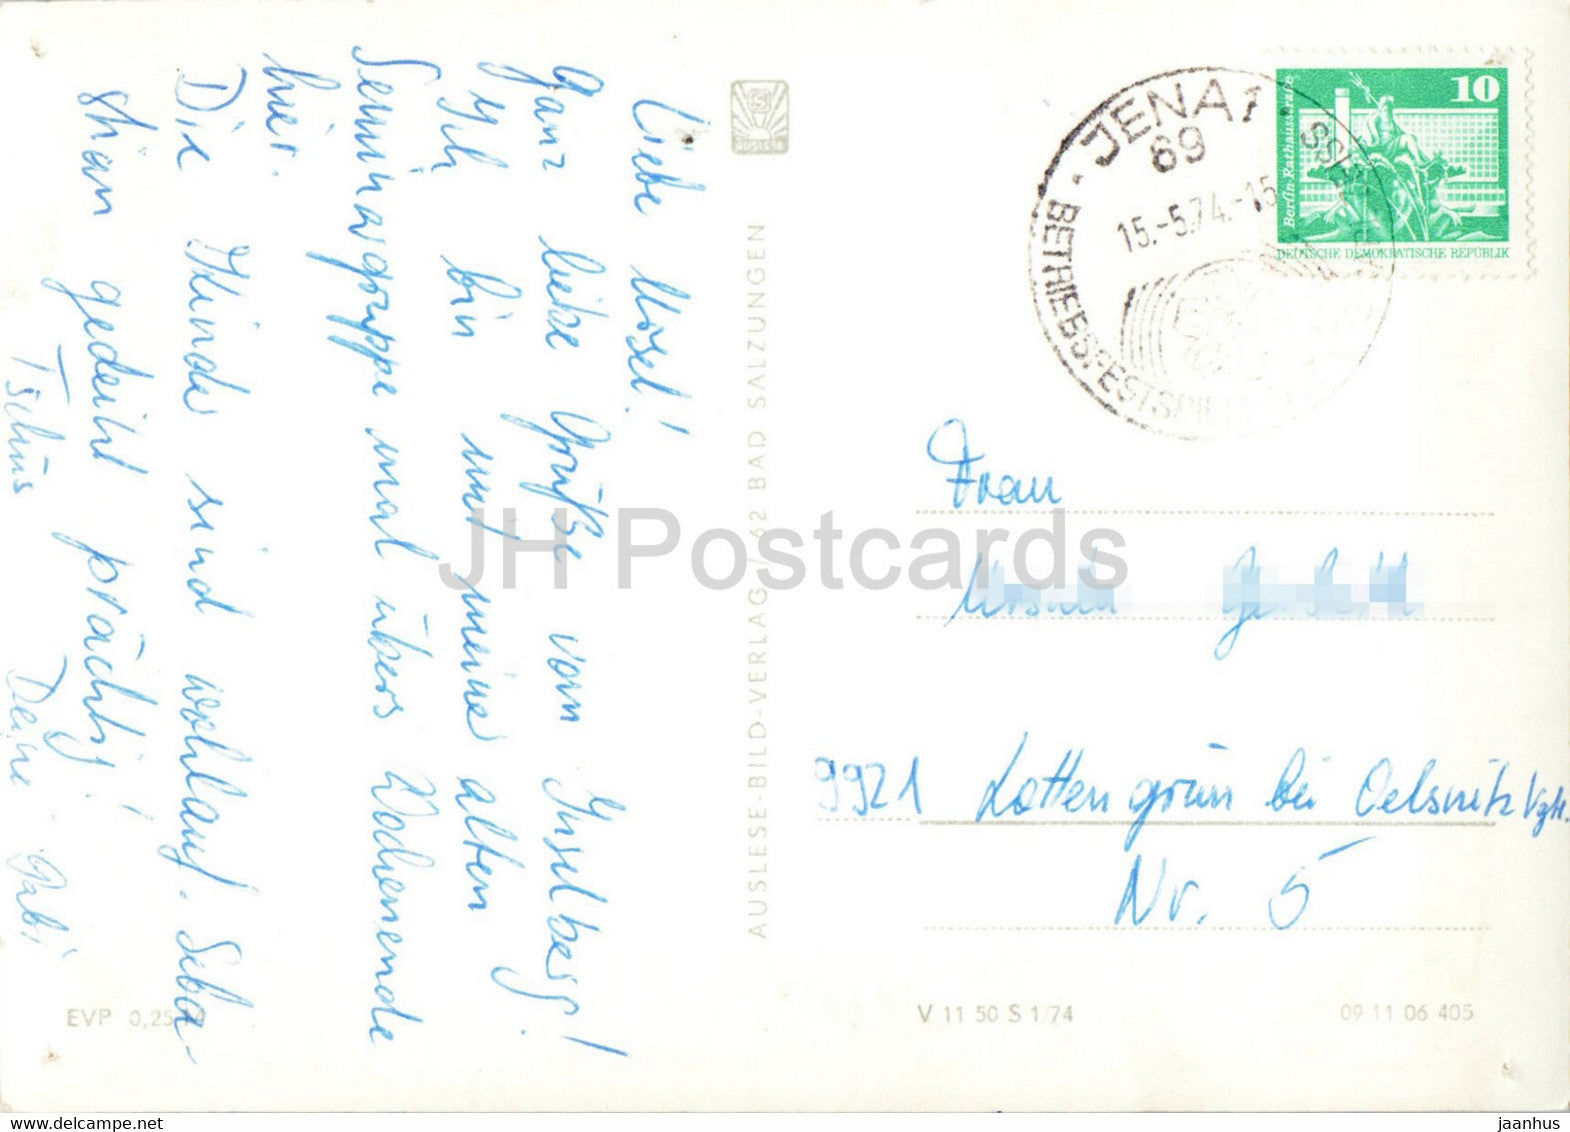 Liebe Ursel!
Ganz liebe Grüße vom Inselberg!
Ich bin mit meine alten
Seminargruppe mal übers Wochenende
hier.
Die Kinder sind wohlauf. Seba-
stian gedeiht prächtig!
Tschüs Deine Gabi
AUSLESE-BILD-VERLAG / 62 BAD SALZUNGEN
EVP 0,25
JENA 1
69
15.-5.74.-15
BETRIEBSFESTSPIELE
10
Berlin Rathausstraße
DEUTSCHE DEMOKRATISCHE REPUBLIK
Frau
9921 Lottengrün bei Oelsnitz Vgtl.
Nr. 5
V 11 50 S 1/74
09 11 06 405
JH Postcards
delcampe.net
jaanhus